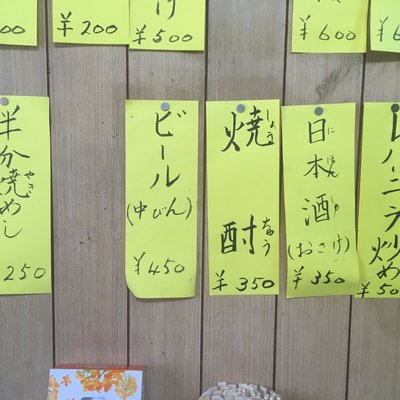 200
¥200
け
¥500
¥600
半分焼めし
やき
250
ビール
(中びん)
¥450
焼酎
しょうちゅう
¥350
日本酒
にほんしゅ
(おさけ)
¥350
レバニラ炒め
¥50